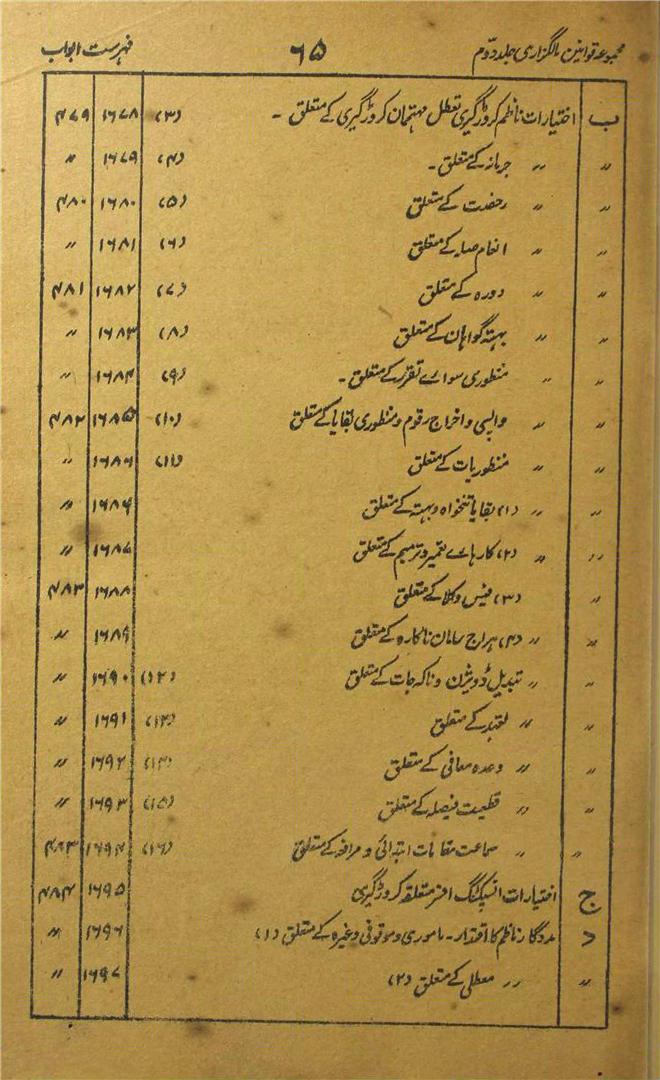 مجموعہ قوانین مالگزاری جلد دوّم ۶۵ فہرست ابواب
ب اختیارات ناظم کروڑگیری تعطل مہتممان کروڑگیری کے متعلق ۔ (۳) ۱۶۷۸ ۴۷۹
〃 〃 〃 جرمانہ کے متعلق ۔ (۴) ۱۶۷۹ 〃
〃 〃 رخصت کے متعلق (۵) ۱۶۸۰ ۴۸۰
〃 〃 انعام صلہ کے متعلق (۶) ۱۶۸۱ 〃
〃 〃 دورہ کے متعلق (۷) ۱۶۸۲ ۴۸۱
〃 〃 بہتہ گواہان کے متعلق (۸) ۱۶۸۳ 〃
〃 〃 منظوری سوائے تقرر کے متعلق ۔ (۹) ۱۶۸۴ 〃
〃 〃 واپسی و اخراج رقوم و منظوری بقایا کے متعلق (۱۰) ۱۶۸۵ ۴۸۲
〃 〃 منظوریات کے متعلق (۱۱) ۱۶۸۶ 〃
〃 〃 (۱) بقایا تنخواہ و بہتہ کے متعلق ۱۶۸۶ 〃
〃 〃 (۲) کارہائے تعمیر و ترمیم کے متعلق ۱۶۸۷ 〃
〃 (۳) فیس وکلا کے متعلق ۱۶۸۸ ۴۸۳
〃 〃 (۴) ہراج سامان ناکارہ کے متعلق ۱۶۸۹ 〃
〃 〃 تبدیل ڈویژن و ناکہ جات کے متعلق (۱۲) ۱۶۹۰ 〃
〃 〃 کے متعلق (۱۳) ۱۶۹۱ 〃
〃 〃 وعدہ معافی کے متعلق (۱۴) ۱۶۹۲ 〃
〃 〃 قطعیت فیصلہ کے متعلق (۱۵) ۱۶۹۳ 〃
〃 〃 سماعت مقدمات ابتدائی و مرافعہ کے متعلق (۱۶) ۱۶۹۴ ۴۸۳
ج اختیارات انسپکٹنگ افسر متعلقہ کروڑگیری ۱۶۹۵ ۴۸۴
د مددگار ناظم کا اقتدار ۔ ماموری و موقوفی وغیرہ کے متعلق (۱) ۱۶۹۶ 〃
〃 〃 معطلی کے متعلق (۲) ۱۶۹۷ 〃